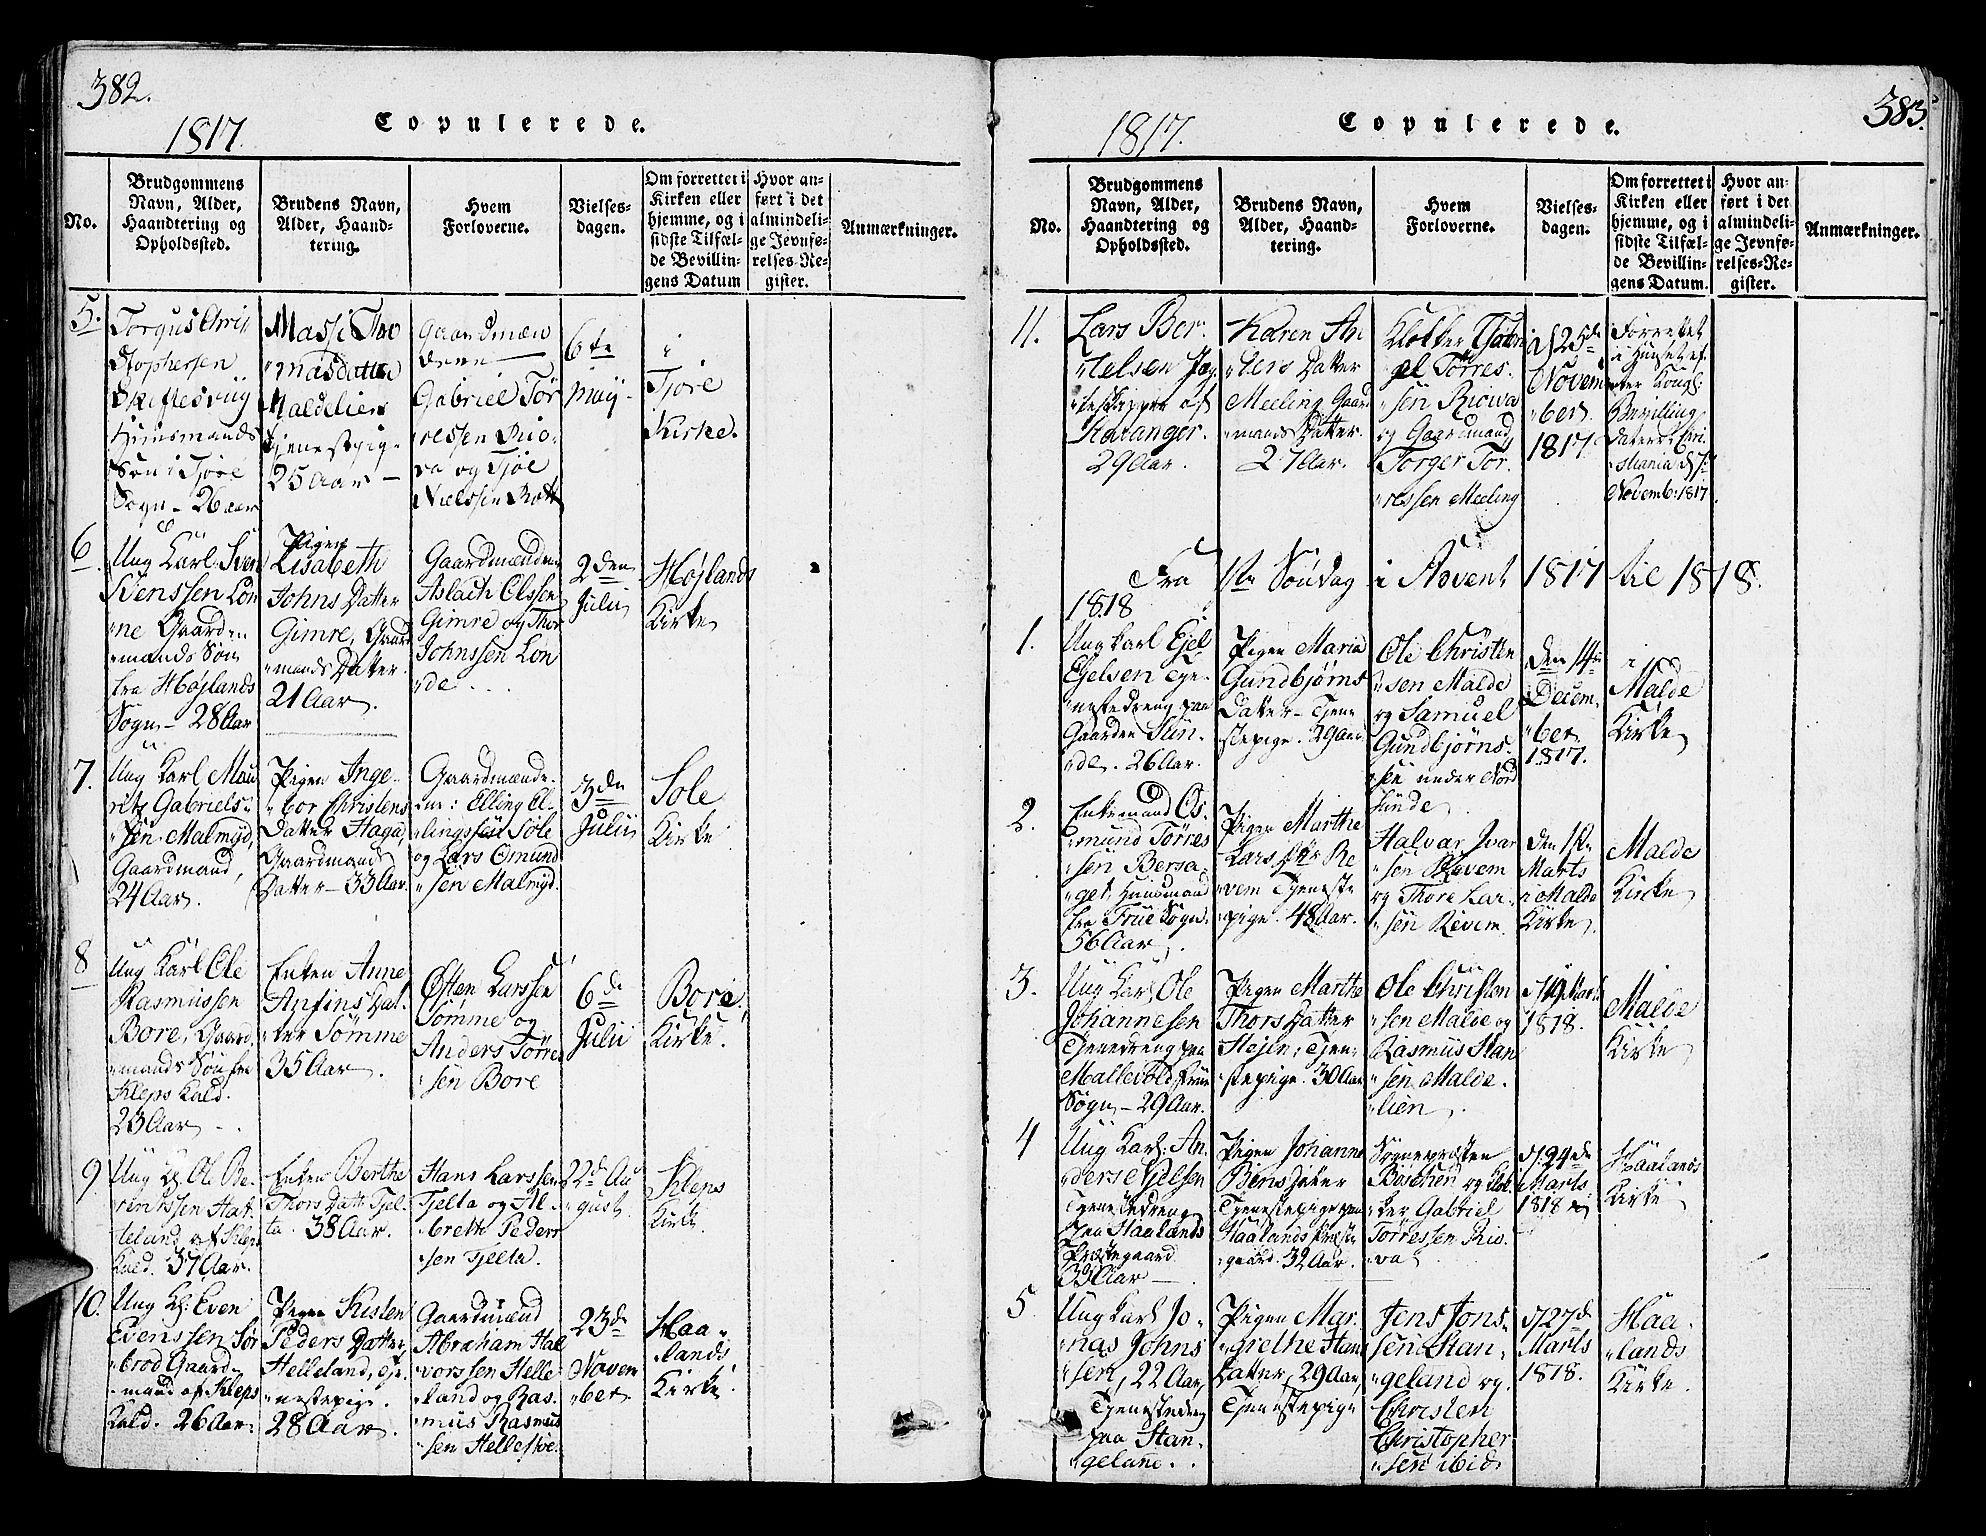 382.
1817.
Copulerede.
No.
Brudgommens
Navn, Alder,
Haandtering og
Opholdssted.
Brudens Navn,
Alder, Haand-
tering.
Hvem
Forloverne.
Vielses-
dagen.
Om forrettet i
Kirken eller
hjemme, og i
sidste Tilfæl-
de Bevillin-
gens Datum
Hvor an-
ført i det
almindeli-
ge Jevnfø-
relses-Re-
gister.
Anmærkninger.
5.
Torgus Chris
stophersen
Huusmands
Søn i Tjøre
Sogn - 26 aar
Massi Tho
masdatter
Maldelien
tjenestpige
25 Aar -
Gaardmæn
dene -
Gabriel Tør
ressen Rio
va og Tjøl
Nielssen Rott
6te
Maij -
i
Tjore
Kirke.
6
Ung Karl: Sven
Svenssen Lon
ne Gaard
mands Søn
fra Højlands
Sogn - 28 Aar
Pigen
Lisabeth
Johns Datter
Gimre, Gaard
mands Datter
21 Aar.
Gaardmænden
Aslach Olssen
Gimre og Thor
Johnssen Lon
de ...
2den
Julii
Højlands
Kirke
7.
Ung Karl Mau
rits Gabriels
sen Malmyd,
Gaardmand,
24 Aar.
Pigen Inge
bor Christens
Datter Haga,
Gaardmands
Datter - 33 Aar.
Gaardmænde
ne: Elling El
lingssøn Sole
og Lars Omund
sen Malmyd.
3den
Julii
Sole
Kirke
8
Ung Karl Ole
Rasmussen
Bore, Gaard
mands Søn fra
Kleps Kald.
23 Aar -.
Enken Anne
Anfins Dat
ter Sømme
35 Aar.
Øften Larssen
Sømme og
Anders Tørre
sen Bore
6de
Julii
Bore
Kirke.
9
Ung K. Ole Be
rentssen Hat
teland af Kleps
Kald. 37 Aar.
Enken Berthe
Thors Datt: Tjel
ta. 38 Aar.
Hans Larssen
Tjelta og Al
breth Peders
sen Tjelta.
22de Au
gust.
Kleps
Kirke.
10.
Ung K: Even
Evenssen Sør
brod Gaard
mand af Kleps
Kald. 26 Aar.
Pigen Kisten
Peders Datter
Helleland, tje
nestepige.
28 Aar.
Gaardmænd
Abraham Hal
vorssen Helle
land og Ras
mus Rasmus
sen Hellestøe.
23de
Novem
ber
Haa
lands
Kirke.
383.
1817.
Copulerede.
No.
Brudgommens
Navn, Alder,
Haandtering og
Opholdssted.
Brudens Navn,
Alder, Haand-
tering.
Hvem
Forloverne.
Vielses-
dagen.
Om forrettet i
Kirken eller
hjemme, og i
sidste Tilfæl-
de Bevillin-
gens Datum.
Hvor an-
ført i det
almindeli-
ge Jevnfø-
relses-Re-
gister.
Anmærkninger.
11.
Lars Ber
telsen
af
Stavanger.
29 Aar.
Karen An
ders Datter
Meeling Gaard
mands Datter.
27 Aar.
Klokker Gabri
el Tørres
sen Riowa
og Gaardmand
Torger Tor
ressen Meeling
d 25de
Novem
ber
1817.
Forrettet
i Huuset ef
ter Kongl:
Bevilling
dateret Chri
stiania d
Novemb: 1817.
Fra 1ste Søndag i Advent 1817 til 1818.
1818
1.
Ung karl Ejel
Ejelsen tje
nestedreng paa
Gaarden Sun
de. 26 Aar.
Pigen Maria
Gundbjørns
Datter - Tjene
stepige. 29 Aar
Ole Christen
sen Malde
og Samuel
Gundbjørns
sen under Nord
sunde
den 14de
Decem
ber
1817.
i
Malde
Kirke
2.
Enkemand Os
mund Tørres
sen Bersa
get, Huusmand
fra Frue Sogn
56 Aar.
Pigen Marthe
Lars Dtr Re
vem Tjeneste
pige. 48 Aar.
Halvar Ivar
sen Revem
og Thore Lar
sen Revem.
den 1ste
Marts
i Malde
Kirke
Malde
Kirke
3.
Ung Karl Ole
Johannesen
Tjenedreng paa
Mallevold, Frue
Sogn - 29 Aar.
Pigen Marthe
Thors Datter
Stejen, Tjene
stepige. 30 Aar
Ole Christen
sen Malde og
Rasmus Han
sen Malde
lien.
d 19 Marts
1818.
Malde
Kirke
4
Ung Karl: An
ders Ejelsen
Tjenestedreng
paa Haalands
Præstegaard
33 Aar -.
Pigen Johanne
Bens Datter
Tjenestepige paa
Haalands Præste
gaard. 32 Aar.
Sognepræsten
og Klok
ker Gabriel
Tørressen Rio
va
d. 24de
Marts
1818
Haalands
Kirke
5
Ung Karl Jo
nas Johns
sen, 22 Aar,
Tjenestedreng
paa Stan
geland..
Pigen Mar
grethe Hans
Datter, 29 Aar,
Tjenestepige
Jens Jons
sen Stan
geland og
Christen
Christopher
sen ibid.
d 27de
Marts
1818.
Haa
lands
Kirke.